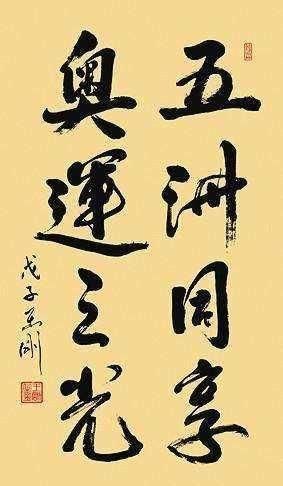 五洲同享
奧運之光
戊子 剛